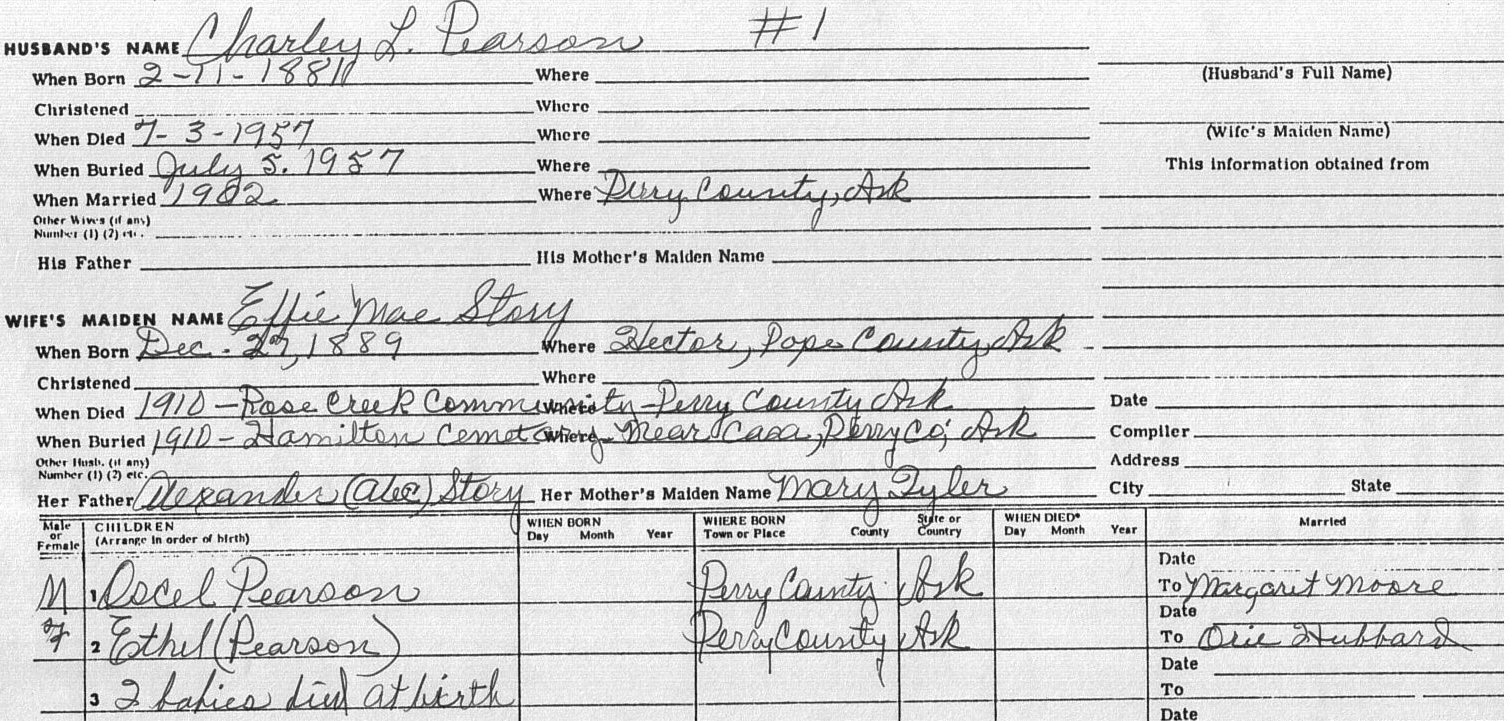 HUSBAND'S NAME Charley L. Pearson #1
When Born 2-11-1881 Where
(Husband's Full Name)
Christened Where
When Died 7-3-1957 Where
(Wife's Maiden Name)
When Buried July 5. 1957 Where
This information obtained from
When Married 1902 Where Perry County, Ark
Other Wives (if any)
Number (1) (2) etc.
His Father His Mother's Maiden Name
WIFE'S MAIDEN NAME Effie Mae Story
When Born Dec. 27, 1889 Where Hector, Pope County, Ark
Christened Where
When Died 1910 - Rose Creek Community - Perry County Ark Where
Date
When Buried 1910 - Hamilton Cemetary Where Near Casa, Perry Co; Ark
Compiler
Other Husb. (if any)
Number (1) (2) etc.
Address
Her Father Alexander (Alec) Story Her Mother's Maiden Name Mary Tyler
City State
Male or Female CHILDREN (Arrange in order of birth) WHEN BORN Day Month Year WHERE BORN Town or Place County State or Country WHEN DIED* Day Month Year Married
Date
M 1 Oscel Pearson Perry County Ark To Margaret Moore
Date
F 2 Ethel (Pearson) Perry County Ark To Orie Hubbard
Date
3 2 babies died at birth To
Date